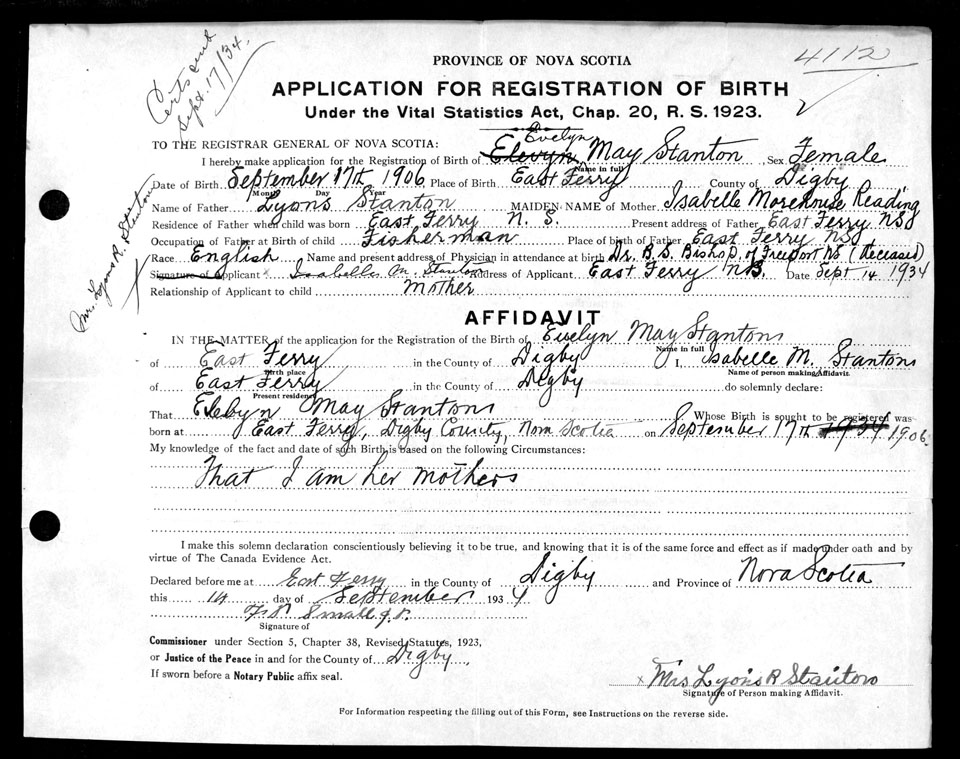 Certs and
Sept. 17/34.
4112
PROVINCE OF NOVA SCOTIA
APPLICATION FOR REGISTRATION OF BIRTH
Under the Vital Statistics Act, Chap. 20, R. S. 1923.
TO THE REGISTRAR GENERAL OF NOVA SCOTIA:
Evelyn
I hereby make application for the Registration of Birth of Elevyn May Stanton Sex Female
Name in full
Date of Birth September 17th 1906 Place of Birth East Ferry County of Digby
Month Day Year
Name of Father Lyons Stanton MAIDEN NAME of Mother Isabelle Morehouse Reading
Residence of Father when child was born East Ferry N. S. Present address of Father East Ferry NS
Occupation of Father at Birth of child Fisherman Place of birth of Father East Ferry NS
Race English Name and present address of Physician in attendance at birth Dr. B.S. Bishop of Freeport NS (Deceased)
Signature of Applicant x Isabelle M. Stanton Address of Applicant East Ferry NS. Date Sept 14 1934
Relationship of Applicant to child Mother
Mr. Lyons R. Stanton
AFFIDAVIT
IN THE MATTER of the application for the Registration of the Birth of Evelyn May Stanton
Name in full
of East Ferry in the County of Digby I, Isabelle M. Stanton
Birth place Name of person making Affidavit.
of East Ferry in the County of Digby do solemnly declare:
Present residence
That Elebyn May Stanton Whose Birth is sought to be registered was
born at East Ferry, Digby County, Nova Scotia on September 17th 1934 1906.
My knowledge of the fact and date of such Birth is based on the following Circumstances:
That I am her mother
I make this solemn declaration conscientiously believing it to be true, and knowing that it is of the same force and effect as if made under oath and by
virtue of The Canada Evidence Act.
Declared before me at East Ferry in the County of Digby and Province of Nova Scotia
this 14 day of September 1934
Small J.P.
Signature of
Commissioner under Section 5, Chapter 38, Revised Statutes, 1923,
or Justice of the Peace in and for the County of Digby
If sworn before a Notary Public affix seal.
x Mrs Lyons R Stanton
Signature of Person making Affidavit.
For Information respecting the filling out of this Form, see Instructions on the reverse side.